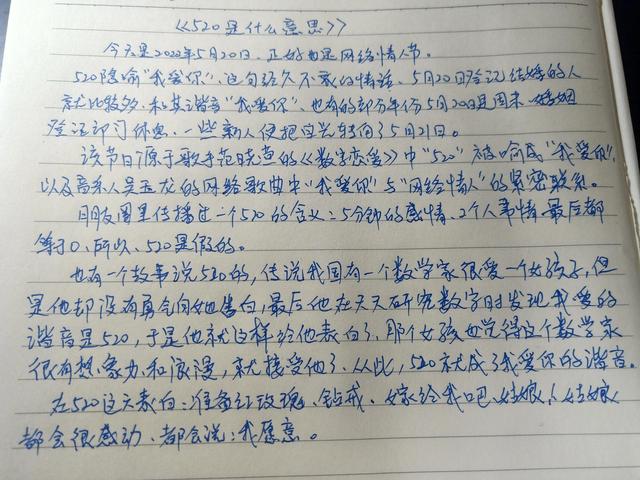 《520是什么意思》
今天是2022年5月20日、正好也是网络情人节。
520隐喻“我爱你”、这句经久不衰的情话、5月20日登记结婚的人
就比较多、和其谐音“我爱你”、也有的部分年份5月20日是周末、婚姻
登记部门休息、一些新人便把目光转向了5月21日。
该节日源于歌手范晓萱的《数字恋爱》中“520”被喻成“我爱你”,
以及音乐人吴玉龙的网络歌曲中“我爱你”与“网络情人”的紧密联系。
朋友圈里传播过一个520的含义:5分钟的感情、2个人事情、最后都
等于0、所以、520是假的。
也有一个故事说520的,传说我国有一个数学家很爱一个女孩子,但
是他却没有勇气向她告白,最后他在天天研究数字时发现我爱的
谐音是520,于是他就这样给他表白了、那个女孩也觉得这个数学家
很有想象力和浪漫,就接受他了、从此,520就成了我爱你的谐音。
在520这天表白:准备红玫瑰、钻戒、嫁给我吧、姑娘、姑娘
都会很感动、都会说:我愿意。